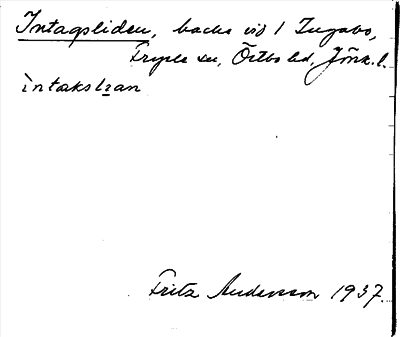 Intagsliden, backe vid 1 Ingabo,
Fryele sn, Östbo hd, Jönk. l.
ìntakslɪan
Fritz Anderson 1937.